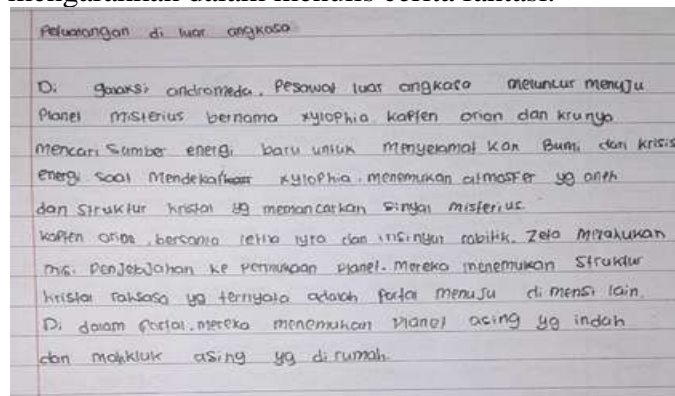 mengarahkan dalam menulis berita fantasi.
Petualangan di luar angkasa
Di galaksi andromeda, Pesawat luar angkasa meluncur menuju
Planet misterius bernama xylophia kapten orion dan krunya
mencari Sumber energi baru untuk menyelamatkan Bumi dari krisis
energi saat mendekati xylophia. menemukan atmosfer yg aneh
dan struktur kristal yg memancarkan sinyal misterius
kapten orion, bersama lyra dan insinyur robotik. Zeta melakukan
misi Penjelajahan ke permukaan planet. Mereka menemukan Struktur
kristal raksasa yg ternyata adalah portal menuju dimensi lain.
Di dalam Portal. mereka menemukan Planet asing yg indah
dan mahkluk asing yg di rumah.